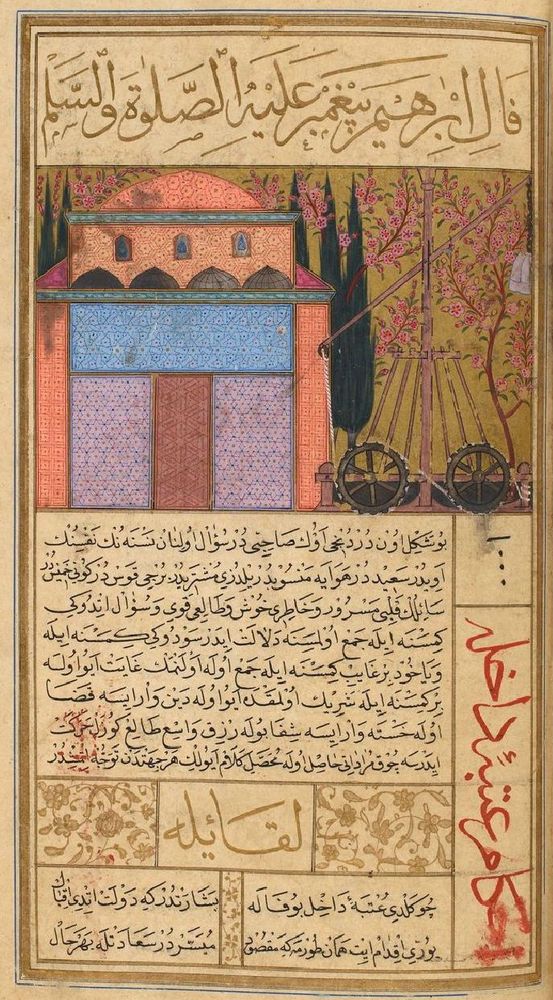 فال ابرهيم پيغمبر عليه الصلوة والسلم
بو شكل اون دردنجى اوك صاحبى در سؤال اولنان نسنه نك نفسنك
اويدر سعيددر هوايه منسوبدر يلدزى مشتريدر برجى قوس در كونى خميس در
سائلك قلبى مسرور و خاطرى خوش و طالعى قوى و سؤال اندوكى
كمسنه ايله جمع اولمسنه دلالت ايدر سودوكى كمسنه ايله
ويا خود بر غايب كمسنه ايله جمع اوله اولنمك غايت ايو اوله
بر كمسنه ايله شريك اولمقده ايو اوله دين وار ايسه قضا
اوله خسته وار ايسه شفا بوله رزق واسع طالع كورر حركت
ايدرسه چوق مرادانى حاصل اوله محصل كلام ايولك هر جهتدن توجه ايتمشدر
احكام عتبهٔ داخله
لقائله
چو كلدى عتبهٔ داخل بو فاله
بشارتدر كه دولت ايتدى اقبال
يورى اقدام ايت همان طورمه كه مقصود
ميسردر سعادتله بهر حال